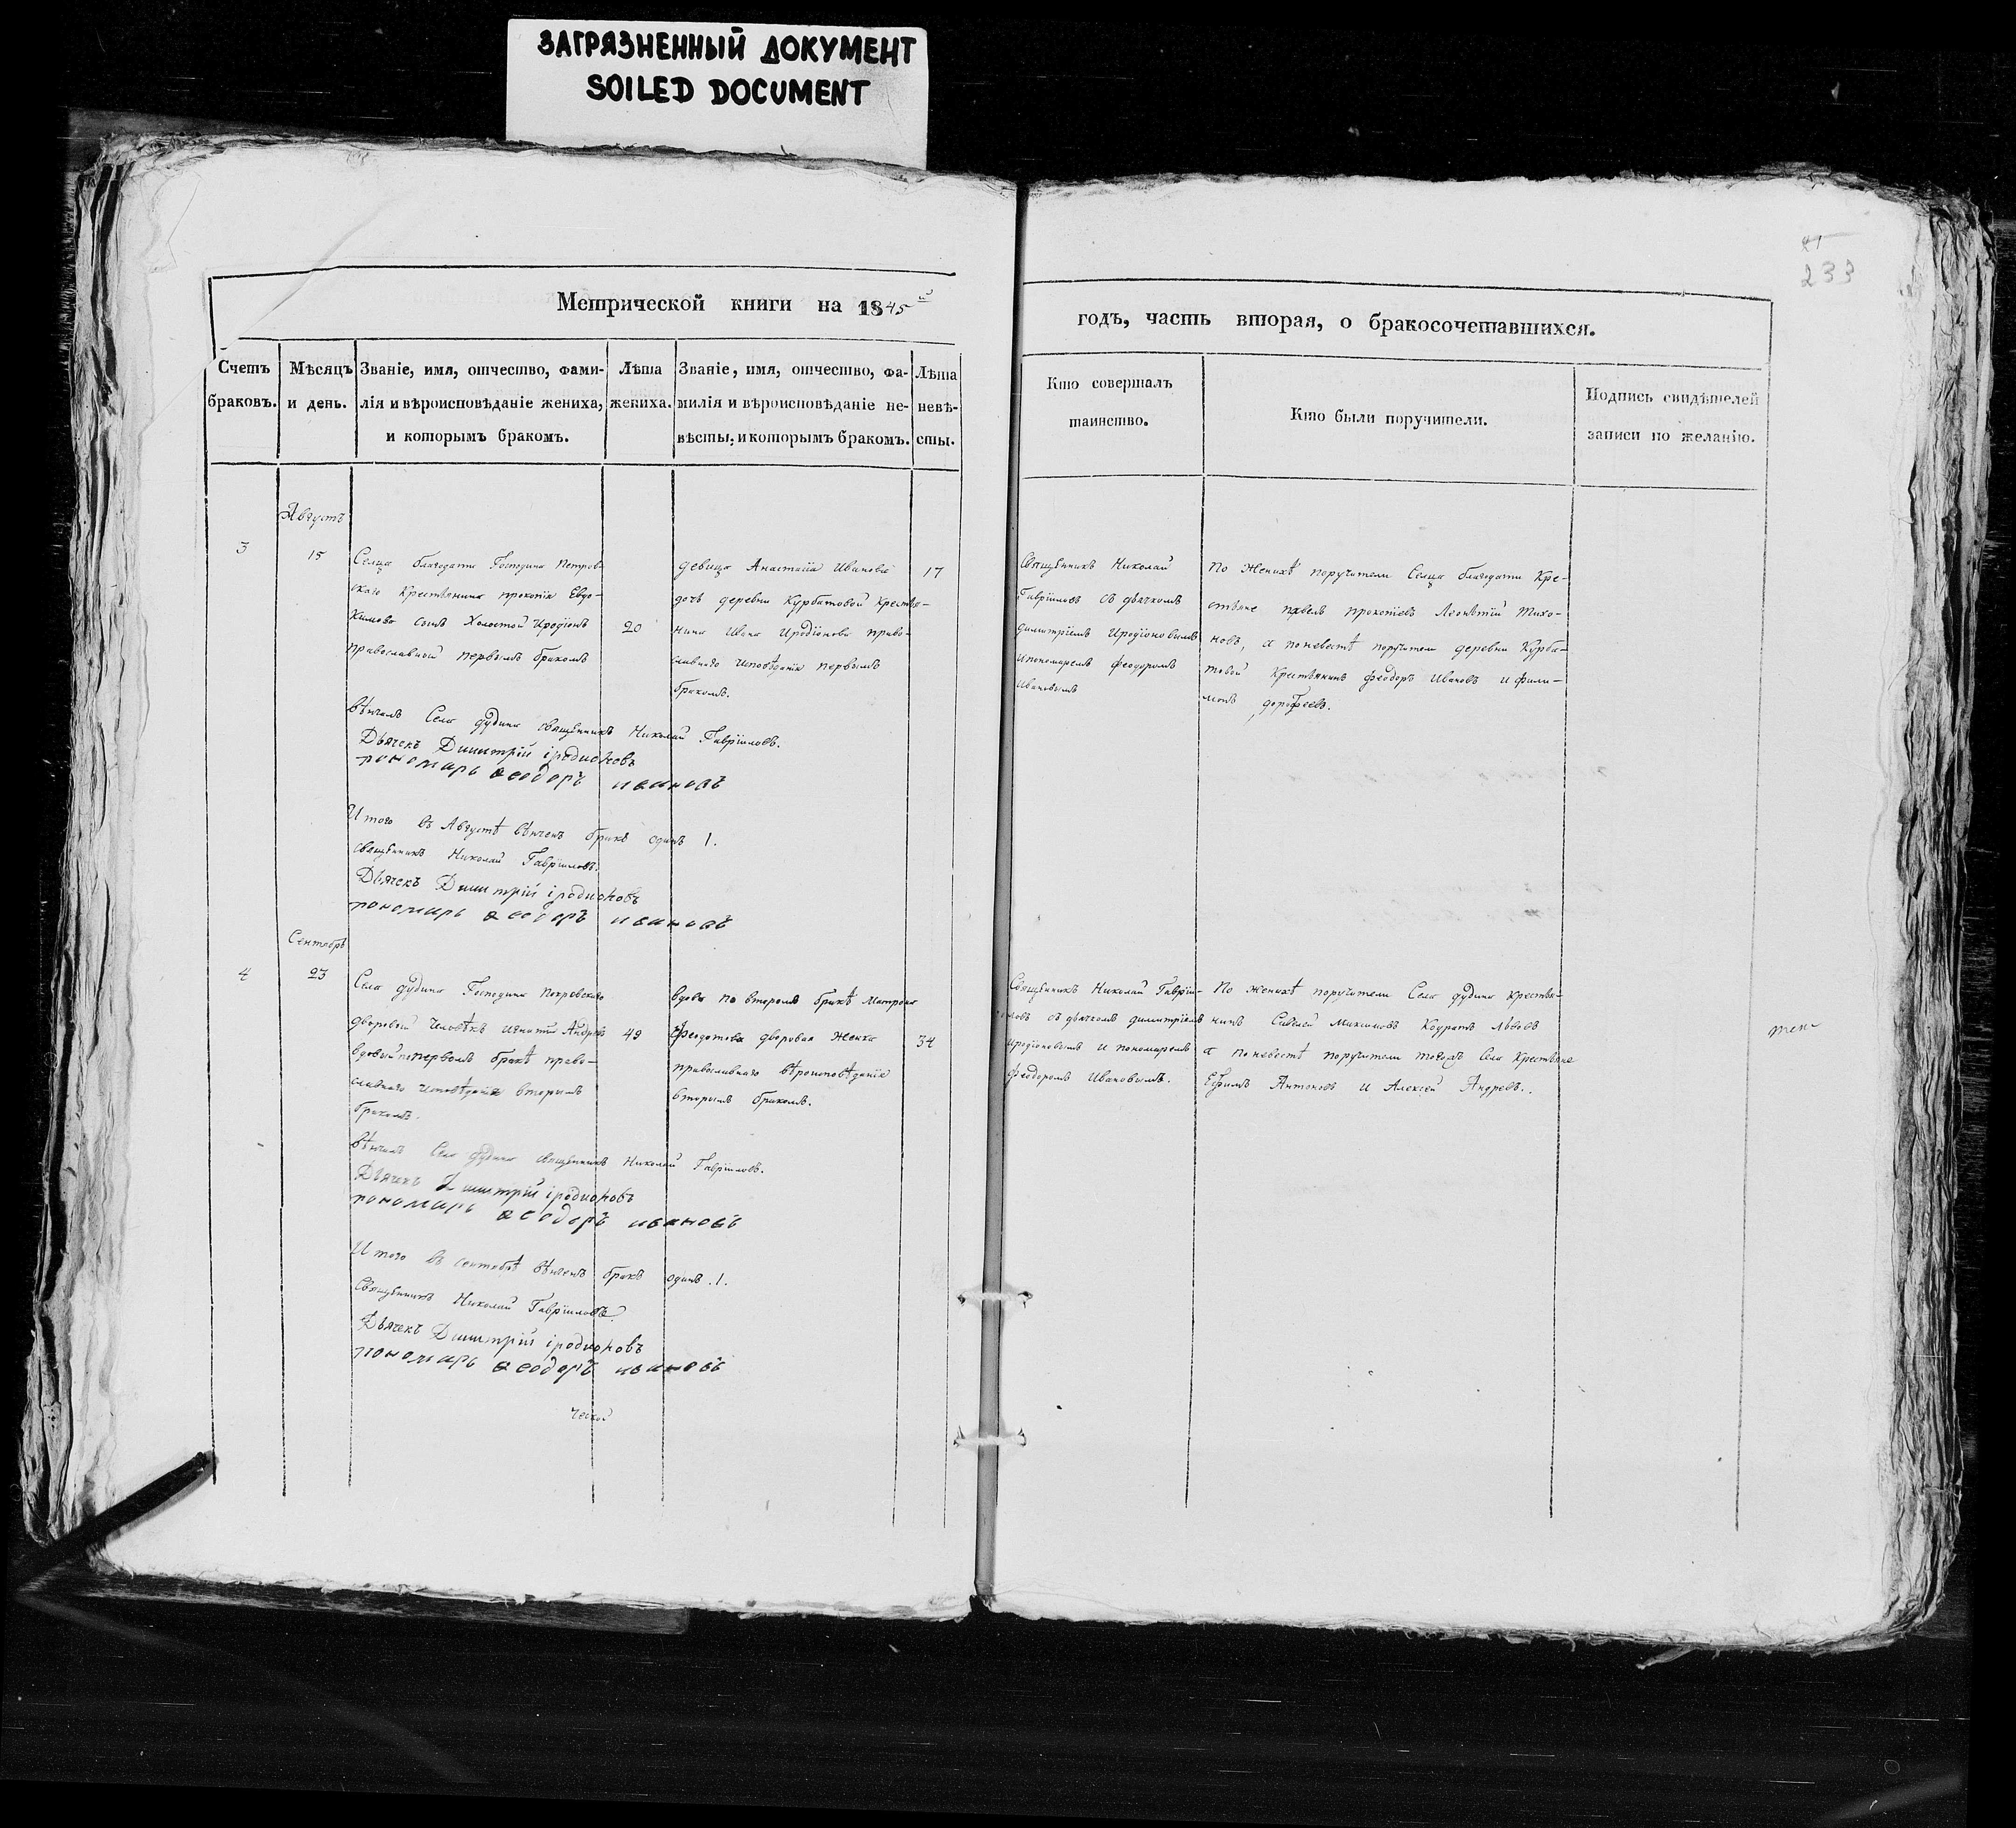 ЗАГРЯЗНЕННЫЙ ДОКУМЕНТ
SOILED DOCUMENT
41
233
Метрической книги на 1845й
годъ, часть вторая, о бракосочетавшихся.
Счетъ браковъ.
Мѣсяцъ и день.
Званіе, имя, отчество, фами-
лія и вѣроисповѣданіе жениха,
и которымъ бракомъ.
Лѣта жениха.
Званіе, имя, отчество, фа-
милія и вѣроисповѣданіе не-
вѣсты; и которымъ бракомъ.
Лѣта невѣ-
сты.
Кто совершалъ
таинство.
Кто были поручители.
Подпись свидѣтелей
записи по желанію.
Августъ
3
15
Селца благодати Господина Петров
скаго Крестьянина прокопія Евдо-
кимова сынъ Холостой Иродіонъ
православный первымъ бракомъ
20
девица Анастасія Иванова
дочь деревни Курбатовой Крестья-
нина Ивана Иродіонова право-
славнаго исповѣданія первымъ
бракомъ.
17
Священникъ Николай
Гавріиловъ съ дьячкомъ
димитріемъ Иродіоновымъ
и пономаремъ феодоромъ
Ивановымъ
По Женихѣ поручители Селца благодати Кре-
стьяне павелъ прокопіевъ Леонтій Тихо-
новъ, а поневестѣ поручители деревни Курба-
товой Крестьянинъ феодоръ Ивановъ и фили-
монъ дорофеевъ.
вѣнчалъ Села дудина священникъ Николай Гавріиловъ.
Дьячекъ Димитрій іродионовъ
пономарь ѳеодоръ ивановъ
Итого въ Августѣ вѣнчанъ бракъ одинъ 1.
священникъ Николай Гавріиловъ.
Дьячекъ Димитрій іродионовъ
пономарь ѳеодоръ ивановъ
Сентябрь
4
23
Села дудина Господина
дворовый человѣкъ игнатій Андреевъ
вдовый поперьвомъ бракѣ право-
славнаго исповѣданія вторымъ
бракомъ.
49
вдова по второмъ бракѣ Матрона
Феодотова дворовая женка
православнаго вѣроисповѣданія
вторымъ бракомъ.
34
Священникъ Николай Гавріи-
ловъ съ дьячкомъ димитріемъ
иродіоновымъ и пономаремъ
феодоромъ Ивановымъ.
По женихѣ поручители Села дудина крестья-
нинъ Савелей Максимовъ Кодратъ Львовъ
а поневестѣ поручители тогожъ Села Крестьяне
Ефимъ Антоновъ и Алексей Андреевъ.
вѣнчалъ Села дудина священникъ Николай Гавріиловъ.
Дьячекъ Димитрій іродионовъ
пономарь ѳеодоръ ивановъ
Итого въ сентябрѣ вѣнчанъ бракъ одинъ .1.
Священникъ Николай Гавріиловъ
Дьячекъ Димитрій іродионовъ
пономарь ѳеодоръ ивановъ